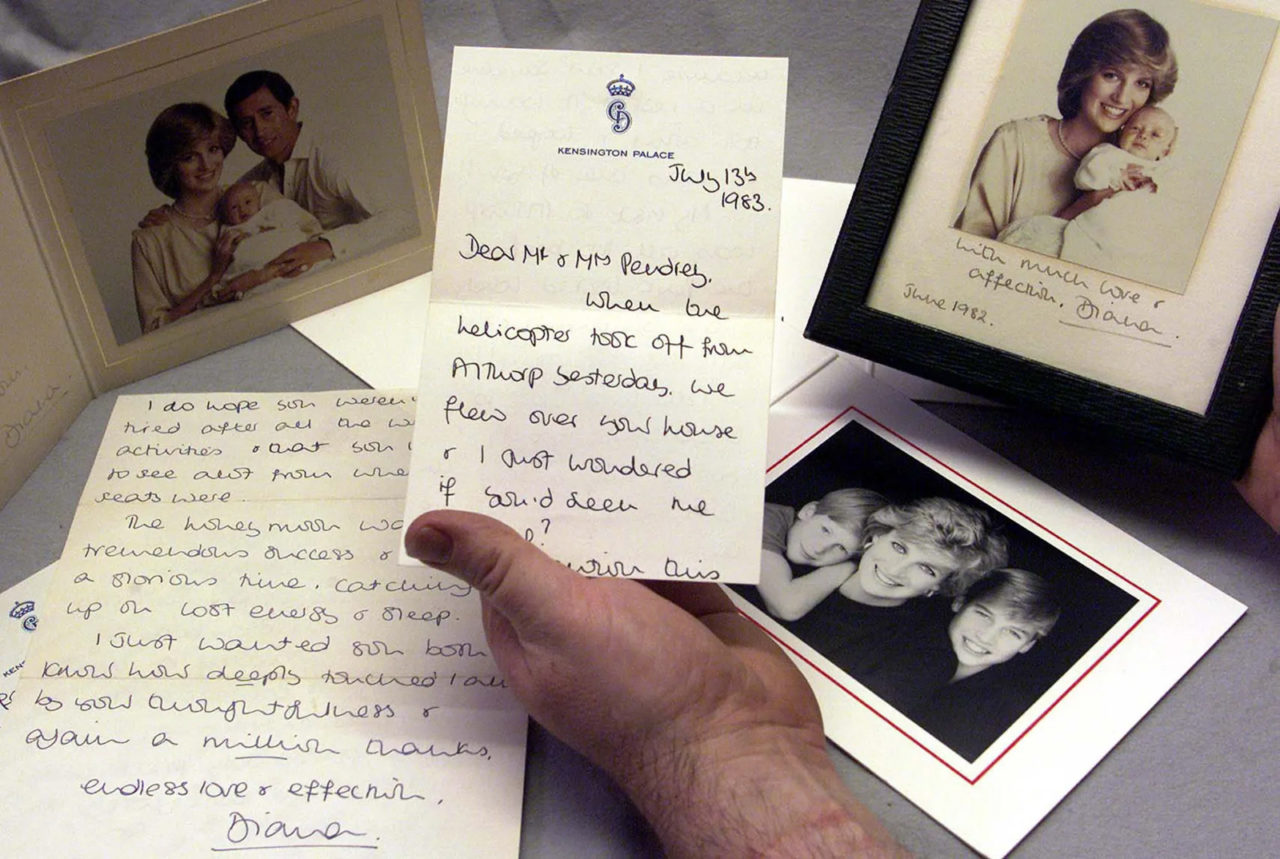 KENSINGTON PALACE
July 13th
1983.
Dear Mr & Mrs Pendrey,
When the
helicopter took off from
Althorp yesterday, we
flew over your house
& I just wondered
if you'd seen me
?
this
With much love &
affection. Diana.
June 1982.
Diana
I do hope you weren
tired after all the w
activities & that you
to see alot from whe
seats were.
The honeymoon wa
tremendous success &
a glorious time, catching
up on lost energy & sleep.
I just wanted you both
know how deeply touched I am
by your thoughtfulness &
again a million thanks,
endless love & affection,
Diana.
KEN